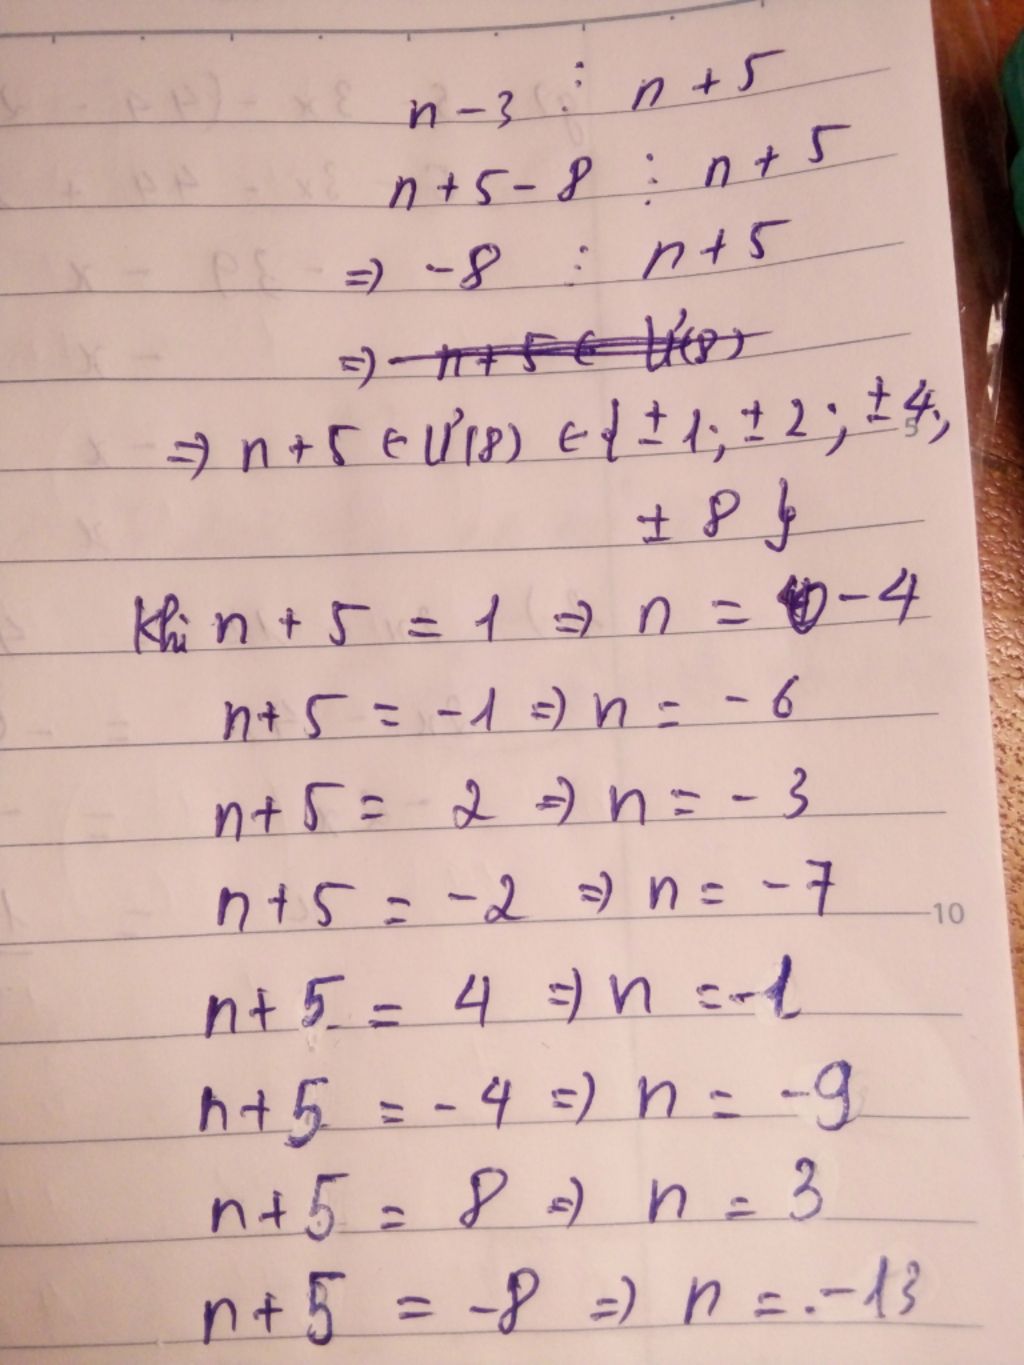 n - 3 ⋮ n + 5
n + 5 - 8 ⋮ n + 5
=> - 8 ⋮ n + 5
=> n + 5 ∈ Ư(8)
=> n + 5 ∈ Ư(8) ∈ { ± 1; ± 2; ± 4;
± 8 }
Khi n + 5 = 1 => n = - 4
n + 5 = - 1 => n = - 6
n + 5 = 2 => n = - 3
n + 5 = - 2 => n = - 7
10
n + 5 = 4 => n = - 1
n + 5 = - 4 => n = - 9
n + 5 = 8 => n = 3
n + 5 = - 8 => n = - 13